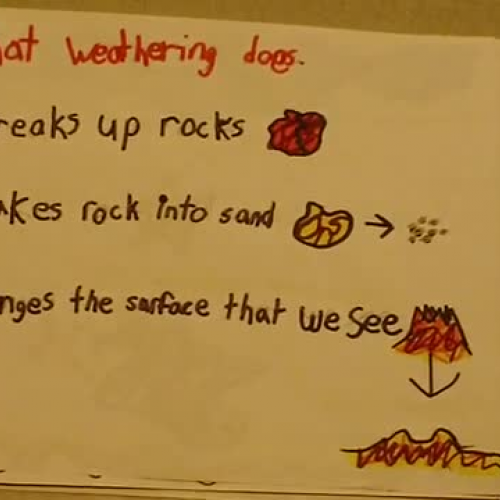 at weathering does.
reaks up rocks
akes rock into sand
nges the surface that we see